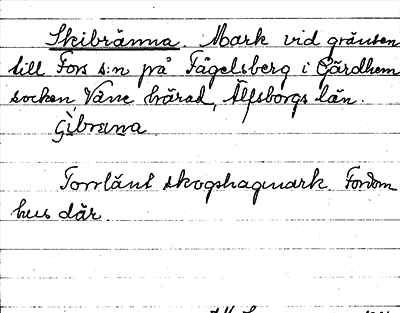 Skibränna. Mark vid gränsen
till Fors s:n på Fågelsberg i Gärdhem
socken, Väne härad, Älfsborgs län.
Torrländ skogshagmark. Fordom
hus där.